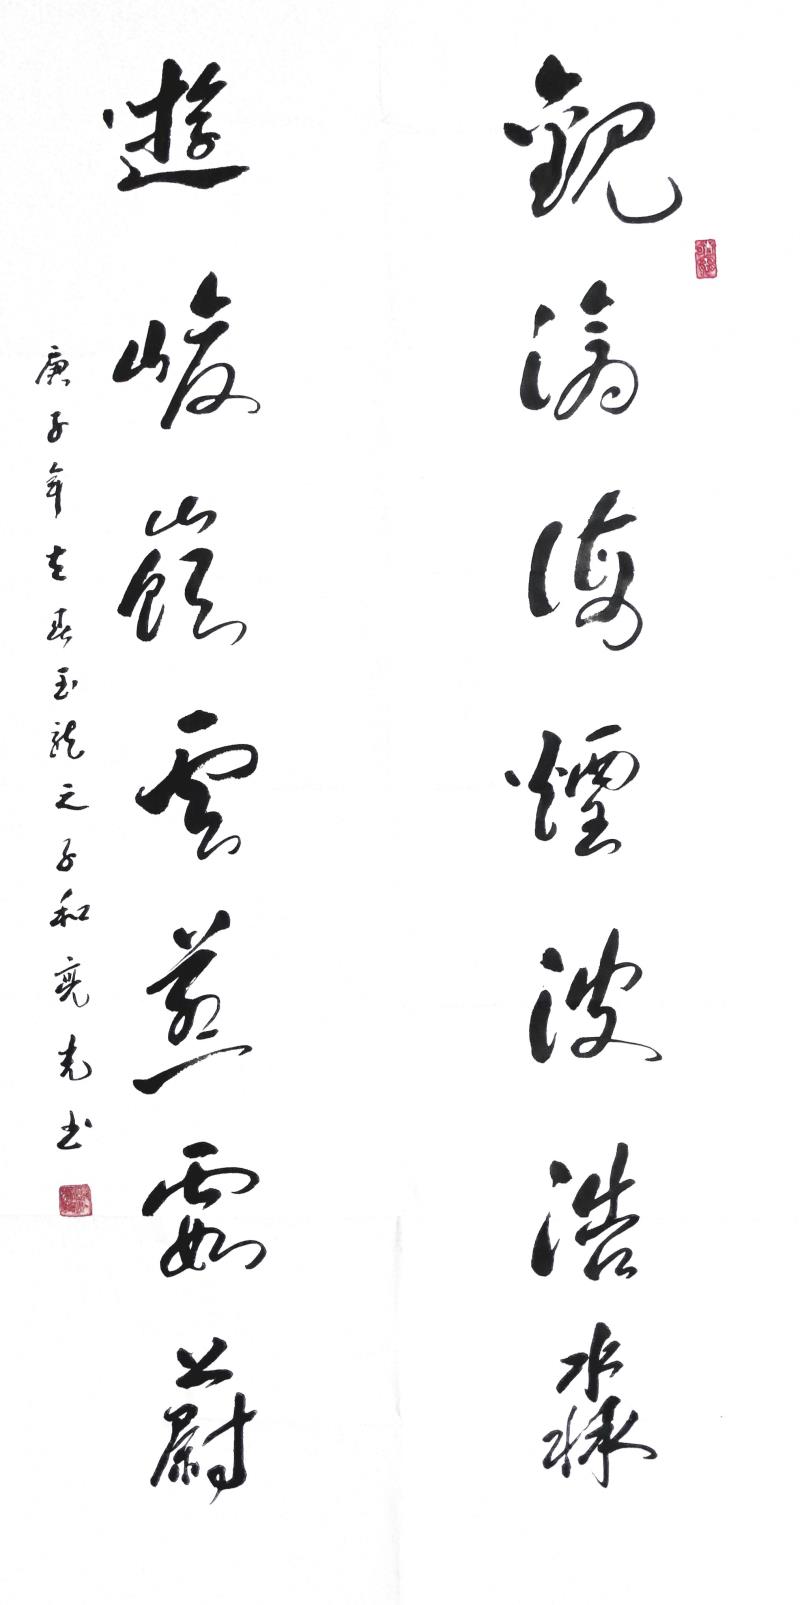 觀滄海煙波浩淼
遊峻嶺雲蒸霞蔚
庚子年立春玉龍之子和亮光书